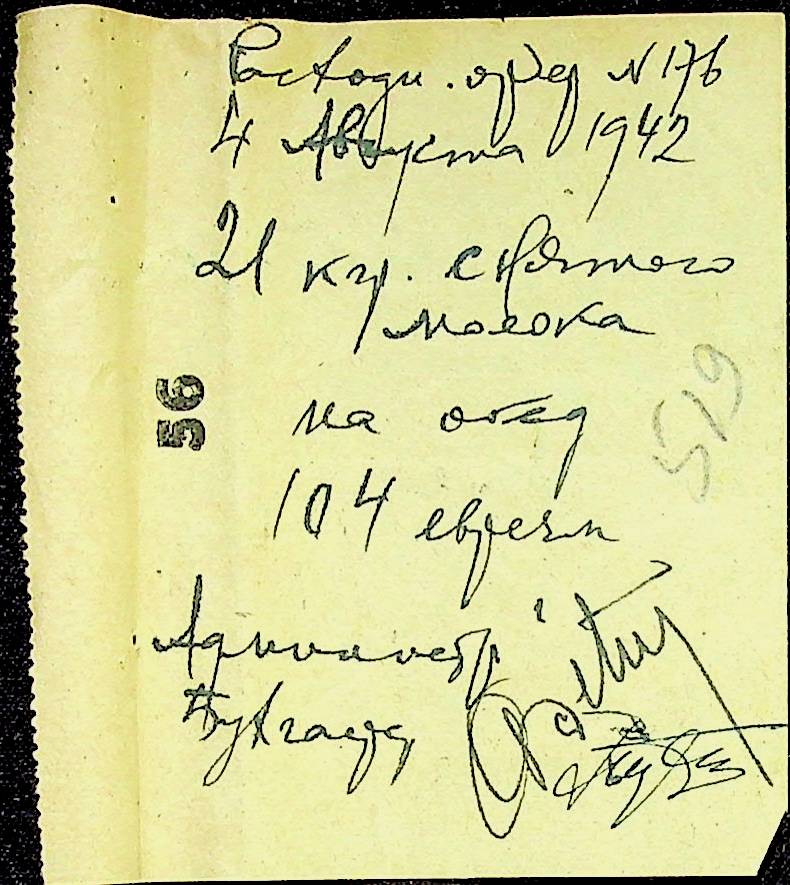 Расходн. орд N 176
4 Августа 1942
21 кгр. снятого
молока
на обед
104 евреям
Администр
Бухгалт
56
519